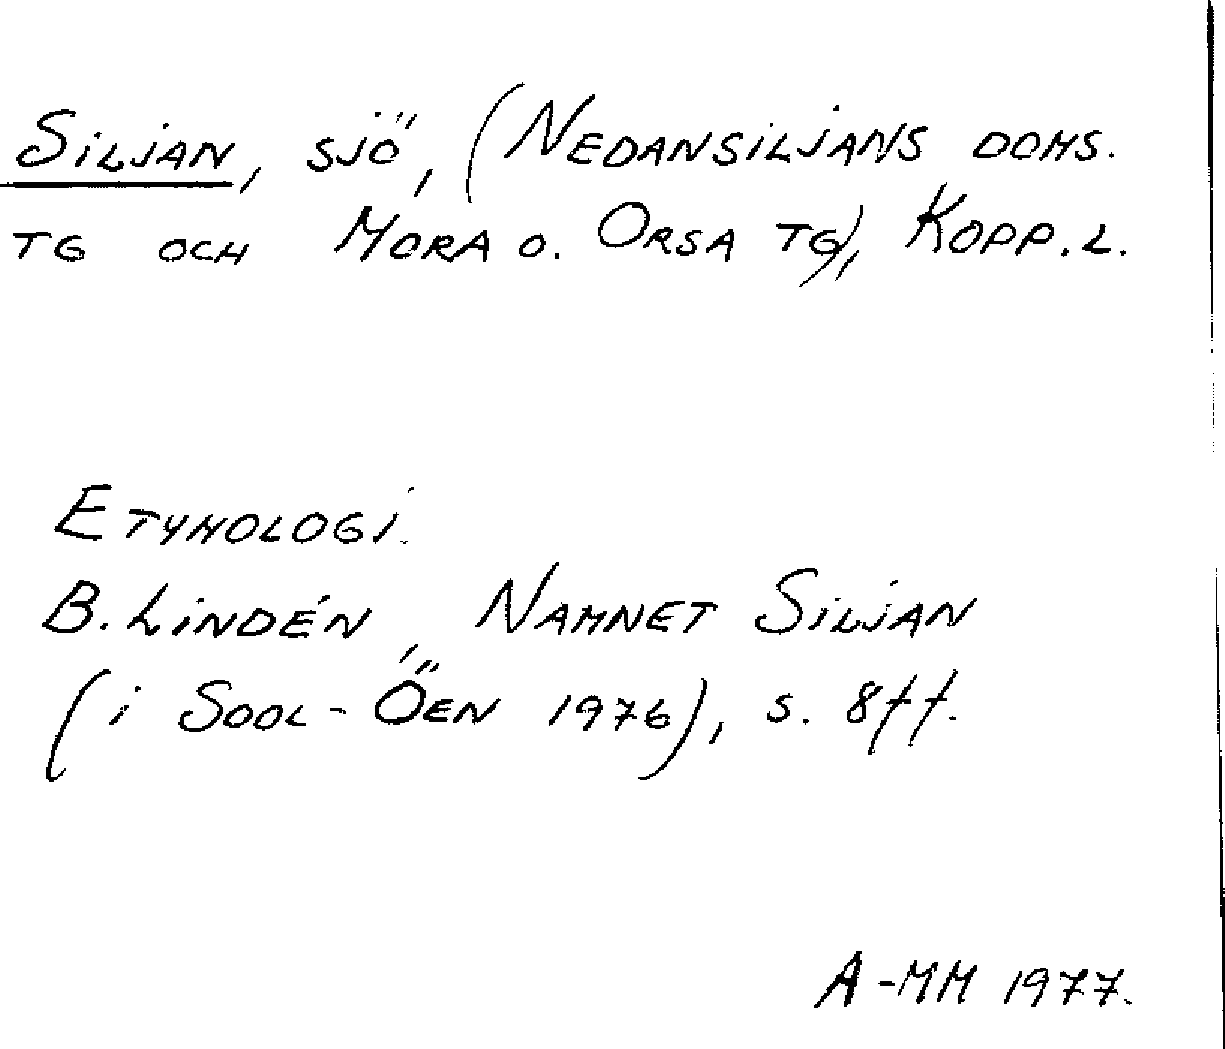 Siljan, sjö, (Nedansiljans doms.
tg och Mora o. Orsa tg), Kopp.l.
Etymologi.
B. Lindén, Namnet Siljan
(i Sool-Öen 1976), s. 8ff.
A-MM 1977.